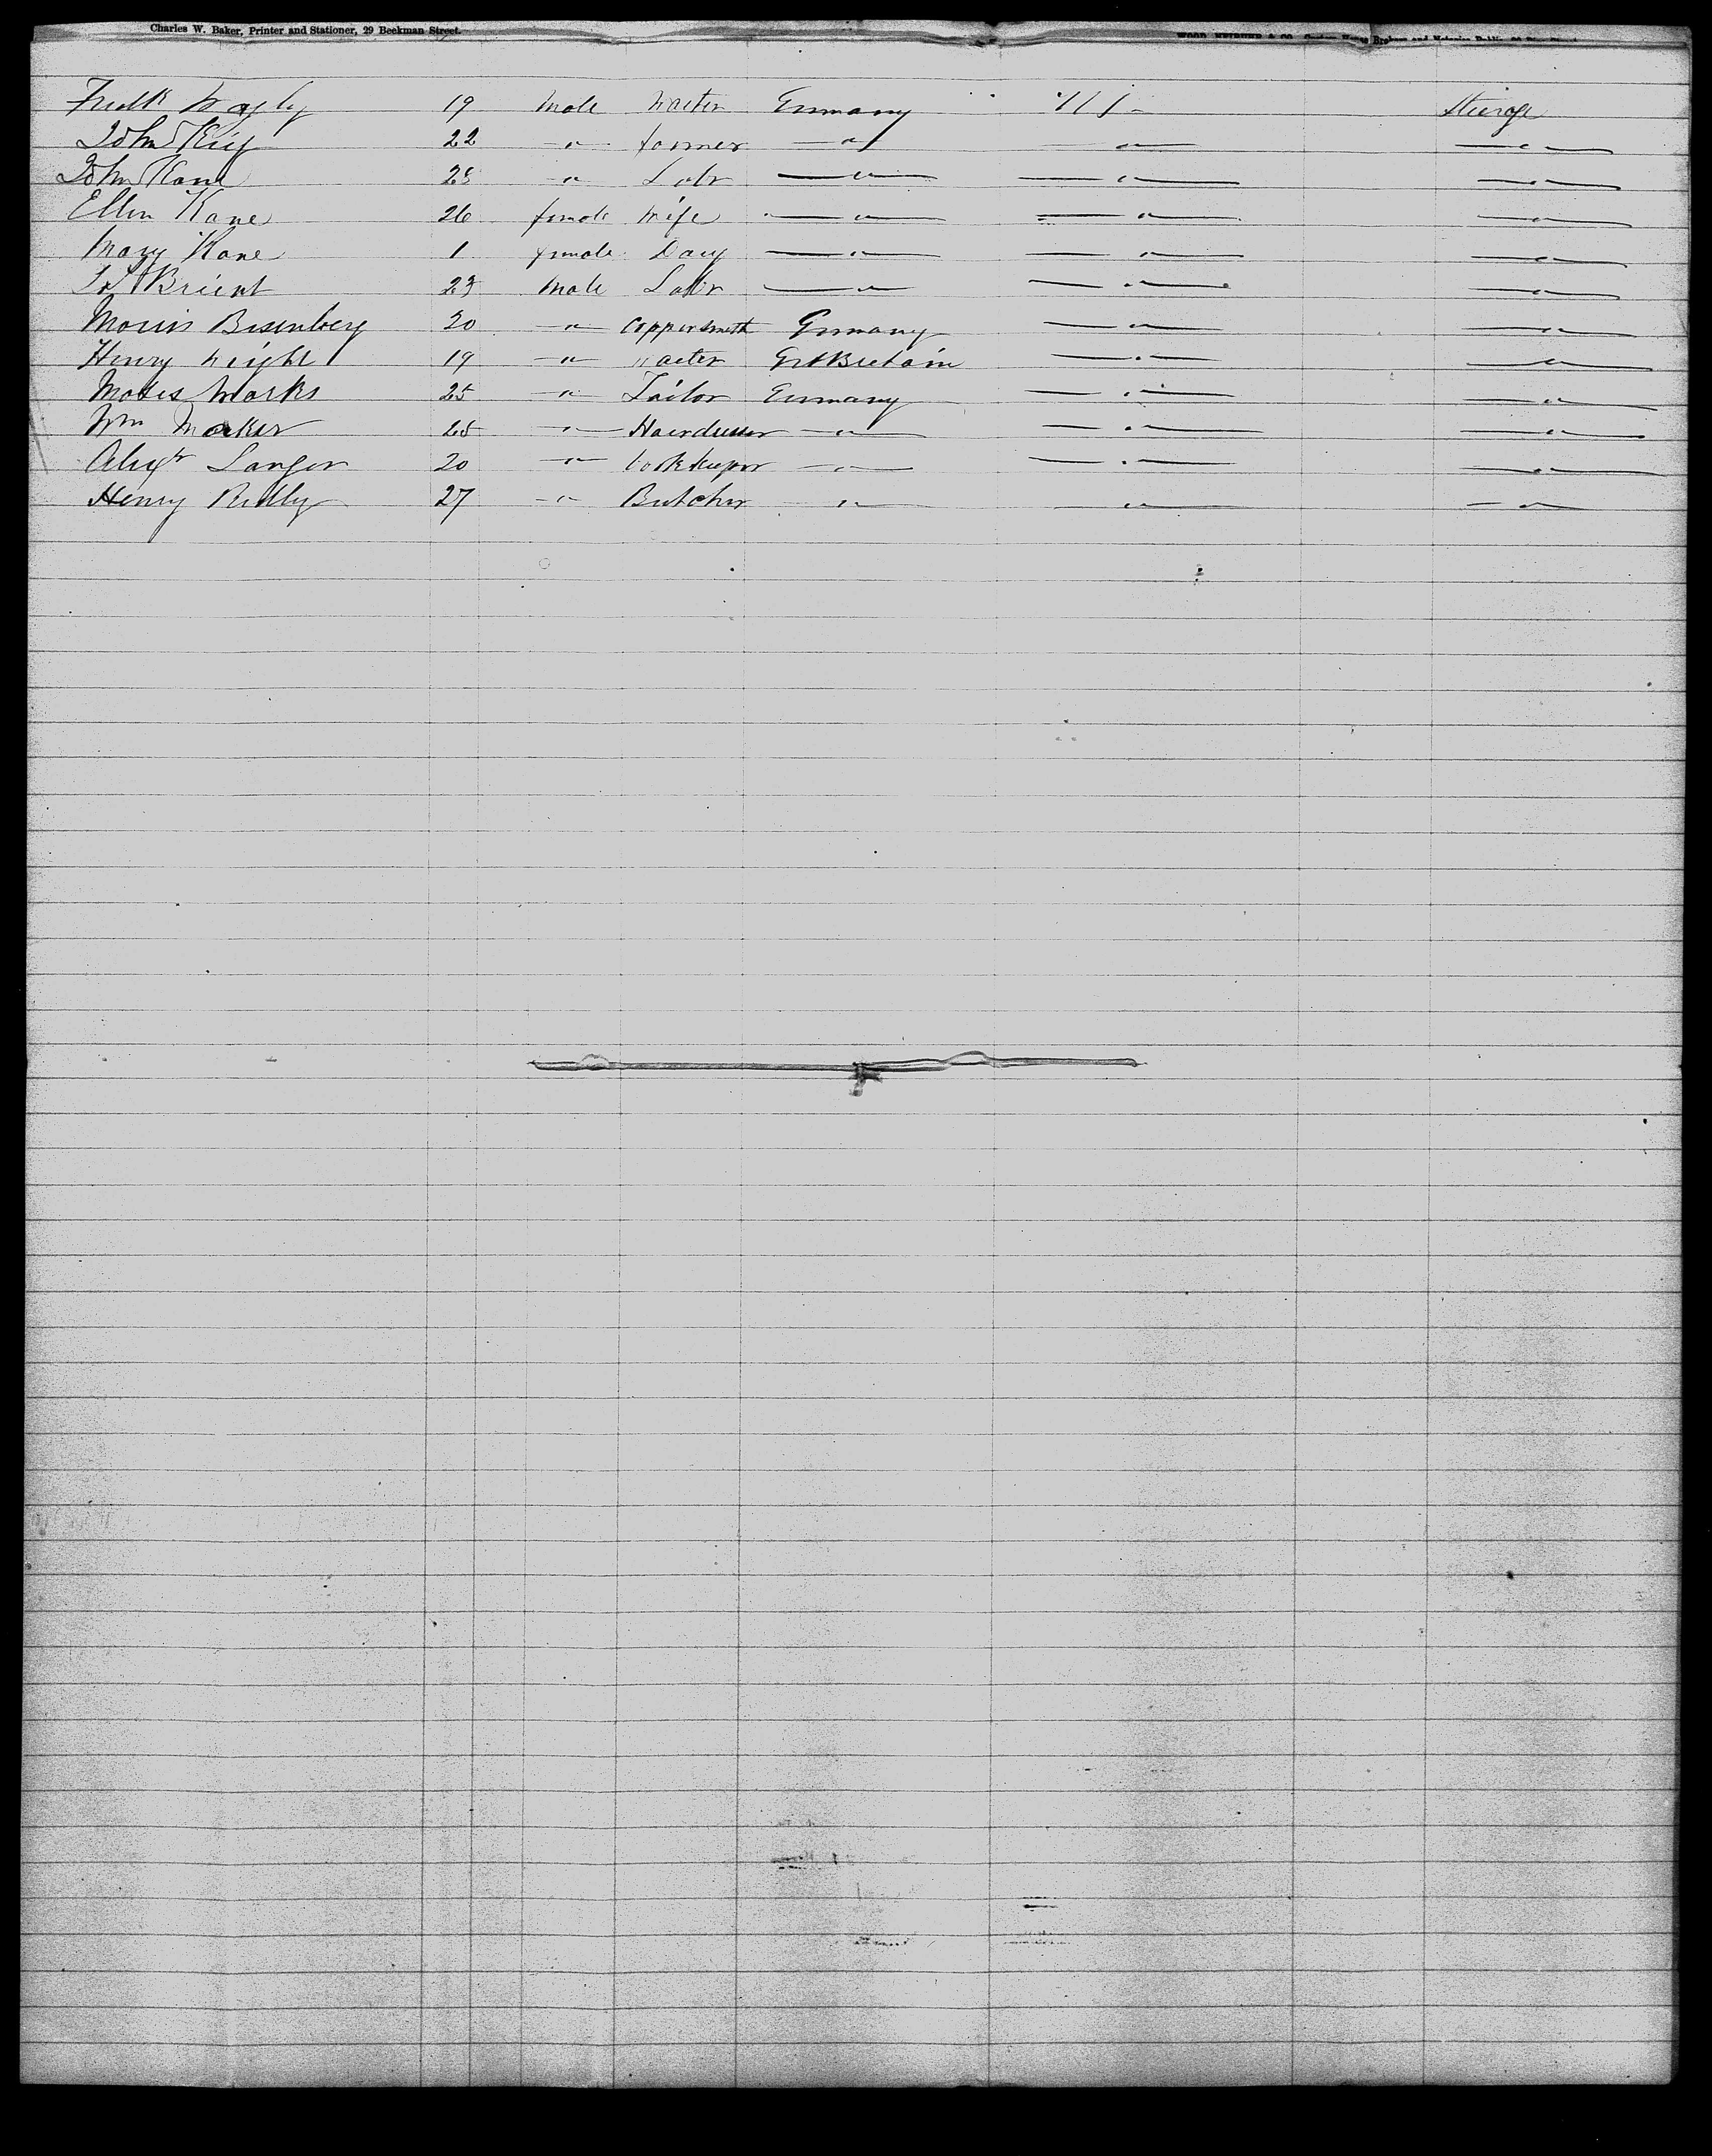 Charles W. Baker, Printer and Stationer, 29 Beekman Street.
Custom House Brokers and Notaries Public
19 male waiter Germany U S Steerage
John 22 " farmer " " "
John Kane 28 " Labr " " "
Ellen Kane 26 female wife " " "
Mary Kane 1 female " " "
Brient 23 male Labr " " "
Morris Besenberg 20 " coppersmith Germany " "
Henry Wright 19 " waiter Gt Britain " "
Moses Marks 25 " Tailor Germany " "
Wm Marker 25 " Hairdresser " " "
Alexr Langer 20 " bookkeeper " " "
Henry Reilly 27 " Butcher " " "